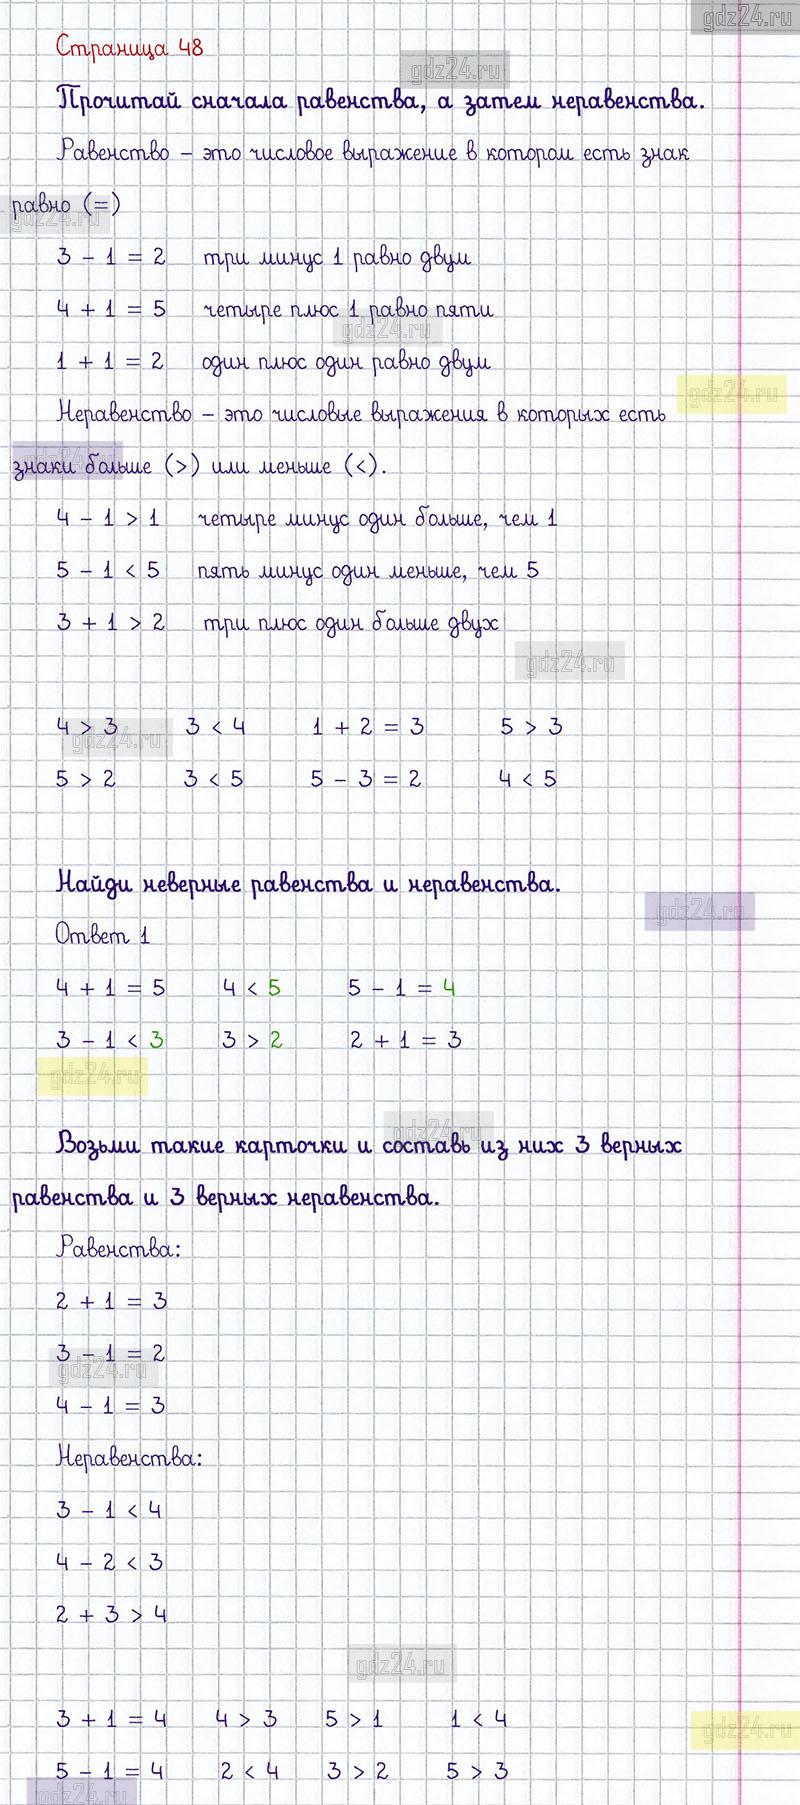 gdz24.ru
Страница 48
gdz24.ru
Прочитай сначала равенства, а затем неравенства.
Равенство – это числовое выражение в котором есть знак
равно (=)
gdz24.ru
3 - 1 = 2 три минус 1 равно двум
4 + 1 = 5 четыре плюс 1 равно пяти
gdz24.ru
1 + 1 = 2 один плюс один равно двум
gdz24.ru
Неравенство – это числовые выражения в которых есть
знаки больше (>) или меньше (<).
4 - 1 > 1 четыре минус один больше, чем 1
5 - 1 < 5 пять минус один меньше, чем 5
3 + 1 > 2 три плюс один больше двух
gdz24.ru
4 > 3 3 < 4 1 + 2 = 3 5 > 3
gdz24.ru
5 > 2 3 < 5 5 - 3 = 2 4 < 5
Найди неверные равенства и неравенства.
gdz24.ru
Ответ 1
4 + 1 = 5 4 < 5 5 - 1 = 4
3 - 1 < 3 3 > 2 2 + 1 = 3
gdz24.ru
gdz24.ru
Возьми такие карточки и составь из них 3 верных
равенства и 3 верных неравенства.
Равенства:
2 + 1 = 3
3 - 1 = 2
gdz24.ru
4 - 1 = 3
Неравенства:
3 - 1 < 4
4 - 2 < 3
2 + 3 > 4
gdz24.ru
3 + 1 = 4 4 > 3 5 > 1 1 < 4
gdz24.ru
5 - 1 = 4 2 < 4 3 > 2 5 > 3
gdz24.ru